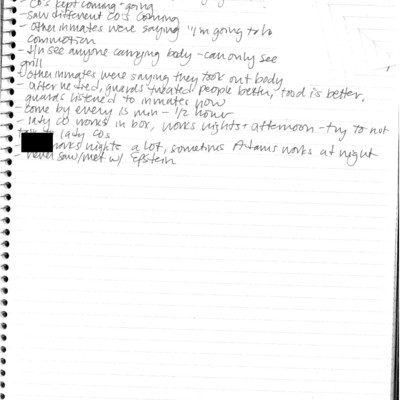 - CO's kept coming + going
- Saw different CO's coming
- other inmates were saying "I'm going to be
commotion
- see anyone carrying body - can only see
grill
- other inmates were saying they took out body
- after he died, guards treated people better, food is better,
guards listened to inmates now
- come by every 15 min - 1/2 hour
- lady CO works in box, works nights + afternoon - try to not
talk to lady COs
- works nights a lot, sometimes Adams works at night
- never saw/met w/ Epstein